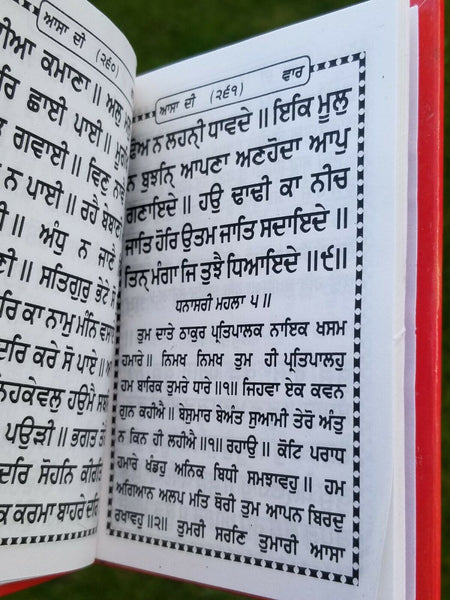 ਆਸਾ ਦੀ (੨੬੦)
ਕਮਾਣਾ॥ ਅਲੁ
ਛਾਈ ਪਾਈ॥
ਗਵਾਈ॥ ਵਿਣੁ ਨਾਵੈ
ਨ ਪਾਈ॥ ਰਹੈ ਬੇਬਾਣੀ
ਅੰਧੁ ਨ ਜਾਣੈ
ਸਤਿਗੁਰੁ ਭੇਟੇ ਸੋ
ਕਾ ਨਾਮੁ ਮੰਨਿ ਵਸਾਏ
ਨਦਰਿ ਕਰੇ ਸੋ ਪਾਏ॥
ਨਿਹਕੇਵਲੁ ਹਉਮੈ ਸਬਦਿ
ਪਉੜੀ॥ ਭਗਤ ਤੇਰੈ
ਦਰਿ ਸੋਹਨਿ ਕੀਰਤਿ
ਕਰਮਾ ਬਾਹਰੇ ਦਰਿ
ਆਸਾ ਦੀ (੨੬੧) ਵਾਰ
ਢੋਅ ਨ ਲਹਨੀ੍ ਧਾਵਦੇ॥ ਇਕਿ ਮੂਲੁ
ਨ ਬੁਝਨਿ੍ ਆਪਣਾ ਅਣਹੋਦਾ ਆਪੁ
ਗਣਾਇਦੇ॥ ਹਉ ਢਾਢੀ ਕਾ ਨੀਚ
ਜਾਤਿ ਹੋਰਿ ਉਤਮ ਜਾਤਿ ਸਦਾਇਦੇ॥
ਤਿਨ੍ ਮੰਗਾ ਜਿ ਤੁਝੈ ਧਿਆਇਦੇ॥੯॥
ਧਨਾਸਰੀ ਮਹਲਾ ੫॥
ਤੁਮ ਦਾਤੇ ਠਾਕੁਰ ਪ੍ਰਤਿਪਾਲਕ ਨਾਇਕ ਖਸਮ
ਹਮਾਰੇ॥ ਨਿਮਖ ਨਿਮਖ ਤੁਮ ਹੀ ਪ੍ਰਤਿਪਾਲਹੁ
ਹਮ ਬਾਰਿਕ ਤੁਮਰੇ ਧਾਰੇ॥੧॥ ਜਿਹਵਾ ਏਕ ਕਵਨ
ਗੁਨ ਕਹੀਐ॥ ਬੇਸੁਮਾਰ ਬੇਅੰਤ ਸੁਆਮੀ ਤੇਰੋ ਅੰਤੁ
ਨ ਕਿਨ ਹੀ ਲਹੀਐ॥੧॥ ਰਹਾਉ॥ ਕੋਟਿ ਪਰਾਧ
ਹਮਾਰੇ ਖੰਡਹੁ ਅਨਿਕ ਬਿਧੀ ਸਮਝਾਵਹੁ॥ ਹਮ
ਅਗਿਆਨ ਅਲਪ ਮਤਿ ਥੋਰੀ ਤੁਮ ਆਪਨ ਬਿਰਦੁ
ਰਖਾਵਹੁ॥੨॥ ਤੁਮਰੀ ਸਰਣਿ ਤੁਮਾਰੀ ਆਸਾ